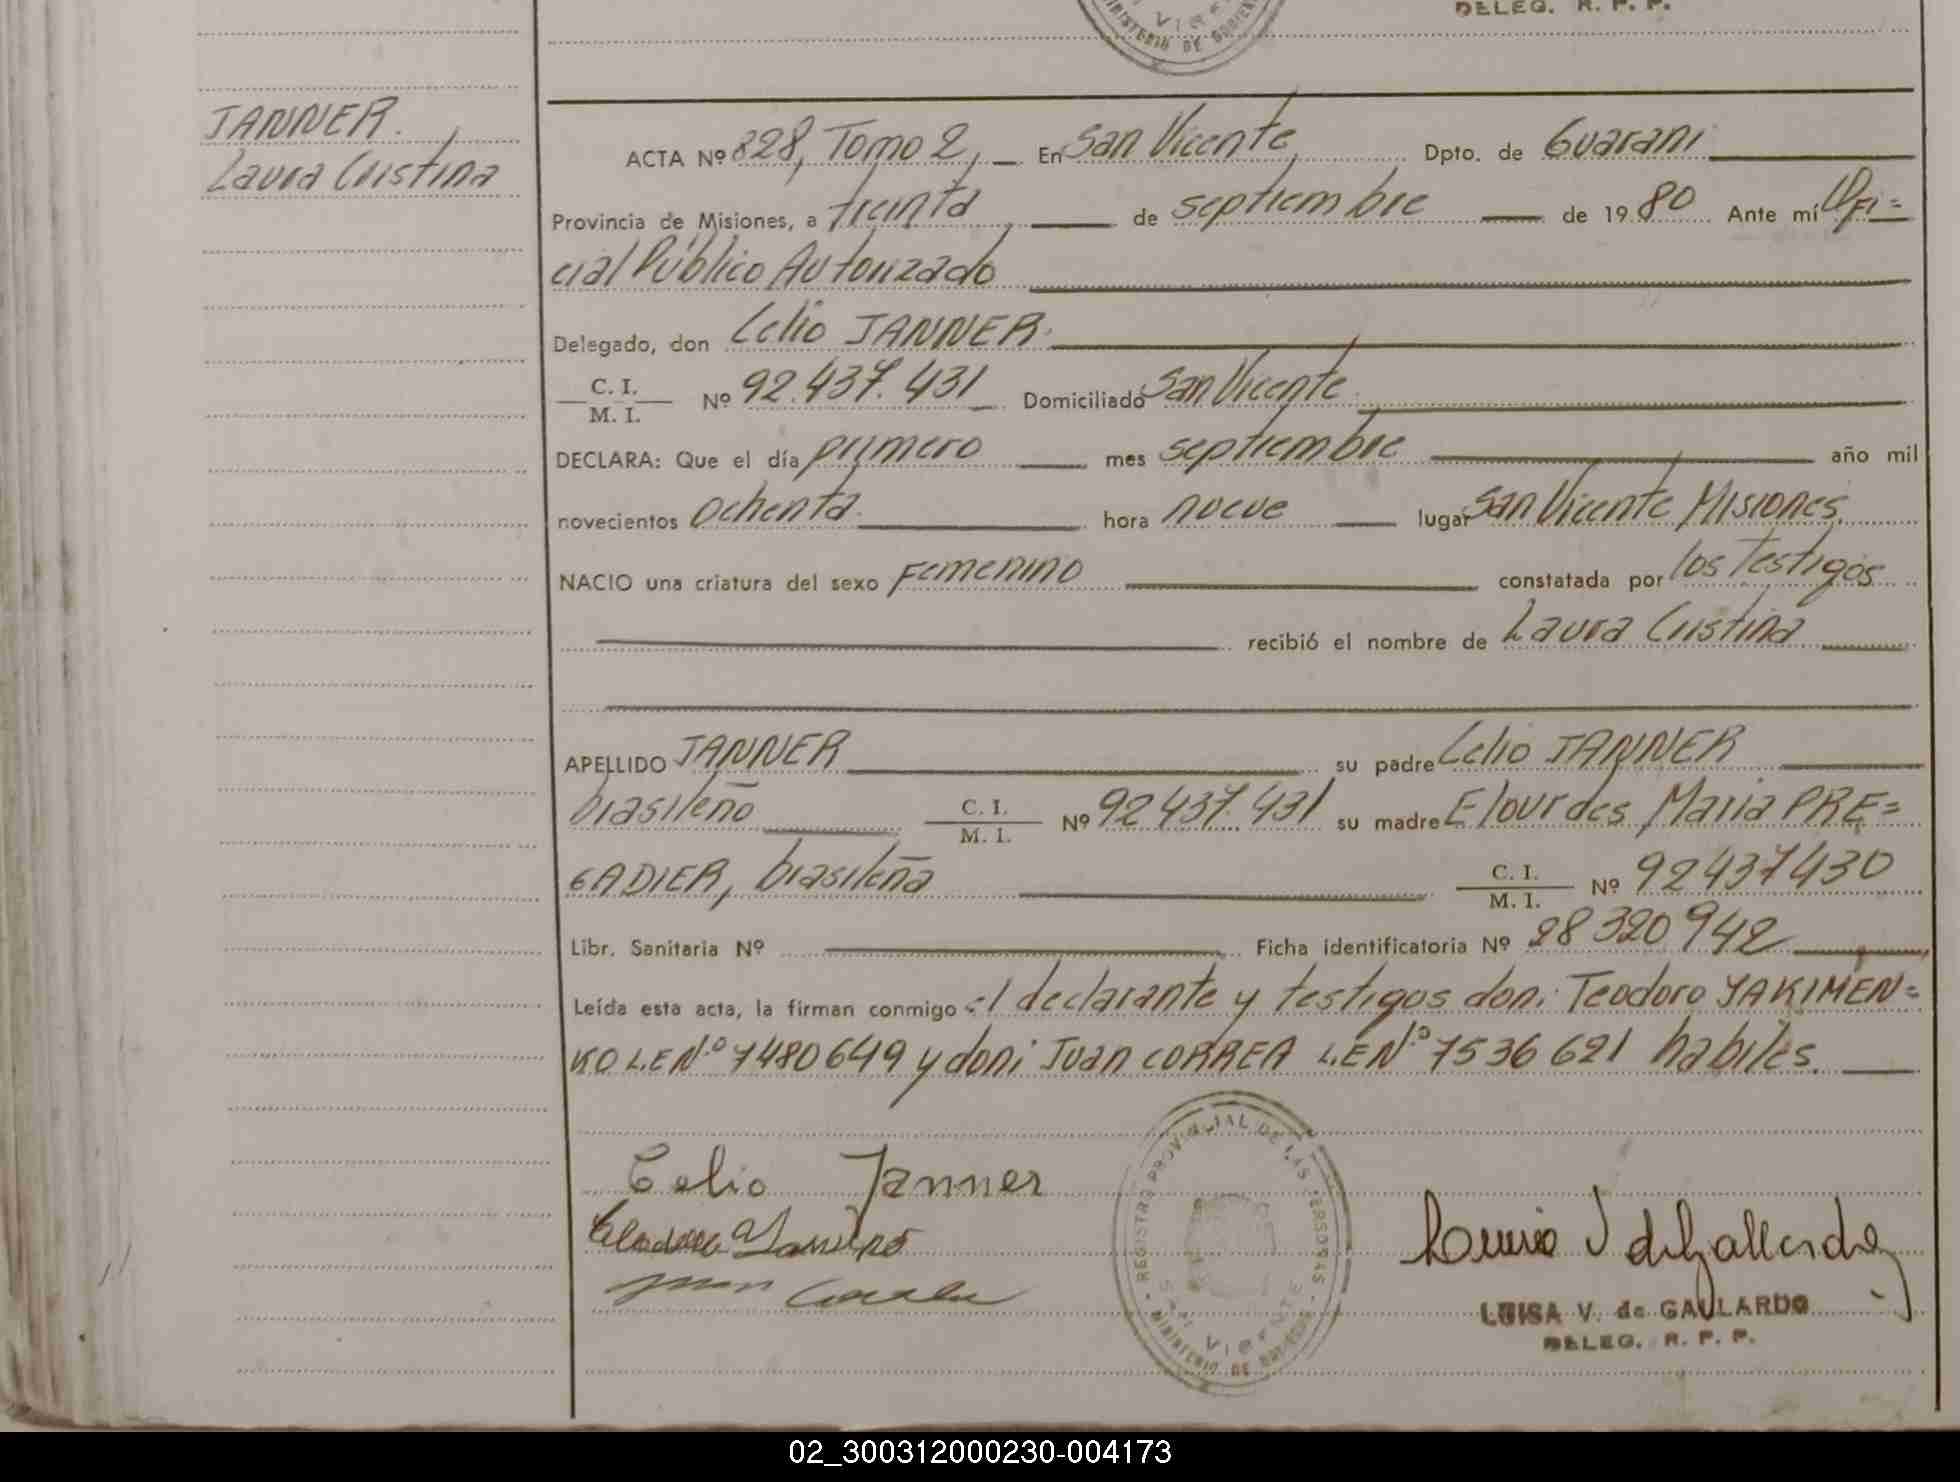 VICENTE
MINISTERIO DE GOBIERNO
DELEG. R. P. P.
JANNER.
Laura Cristina
ACTA Nº 828, Tomo 2, En San Vicente, Dpto. de Guarani
Provincia de Misiones, a treinta de septiembre de 1980 Ante mí Ofi=
cial Público Autorizado
Delegado, don Celio JANNER.
C. I.
M. I. Nº 92.437.431 Domiciliado San Vicente.
DECLARA: Que el día primero mes septiembre año mil
novecientos ochenta. hora nueve lugar San Vicente Misiones.
NACIO una criatura del sexo Femenino constatada por los Testigos
recibió el nombre de Laura Cristina
APELLIDO JANNER su padre Celio JANNER
brasileño C. I.
M. I. Nº 92.437.431 su madre Elourdes Maria PRE=
GADIER, brasileña C. I.
M. I. Nº 92437430
Libr. Sanitaria Nº Ficha identificatoria Nº 28320942
Leída esta acta, la firman conmigo el declarante y testigos don: Teodoro YAKIMEN=
KO L.E Nº 7480649 y don: Juan CORREA L.E Nº 7536621 habiles.
Celio Janner
REGISTRO PROVINCIAL DE LAS PERSONAS
SAN VICENTE
MINISTERIO DE GOBIERNO
LUISA V. de GALLARDO
DELEG. R. P. P.
02_300312000230-004173